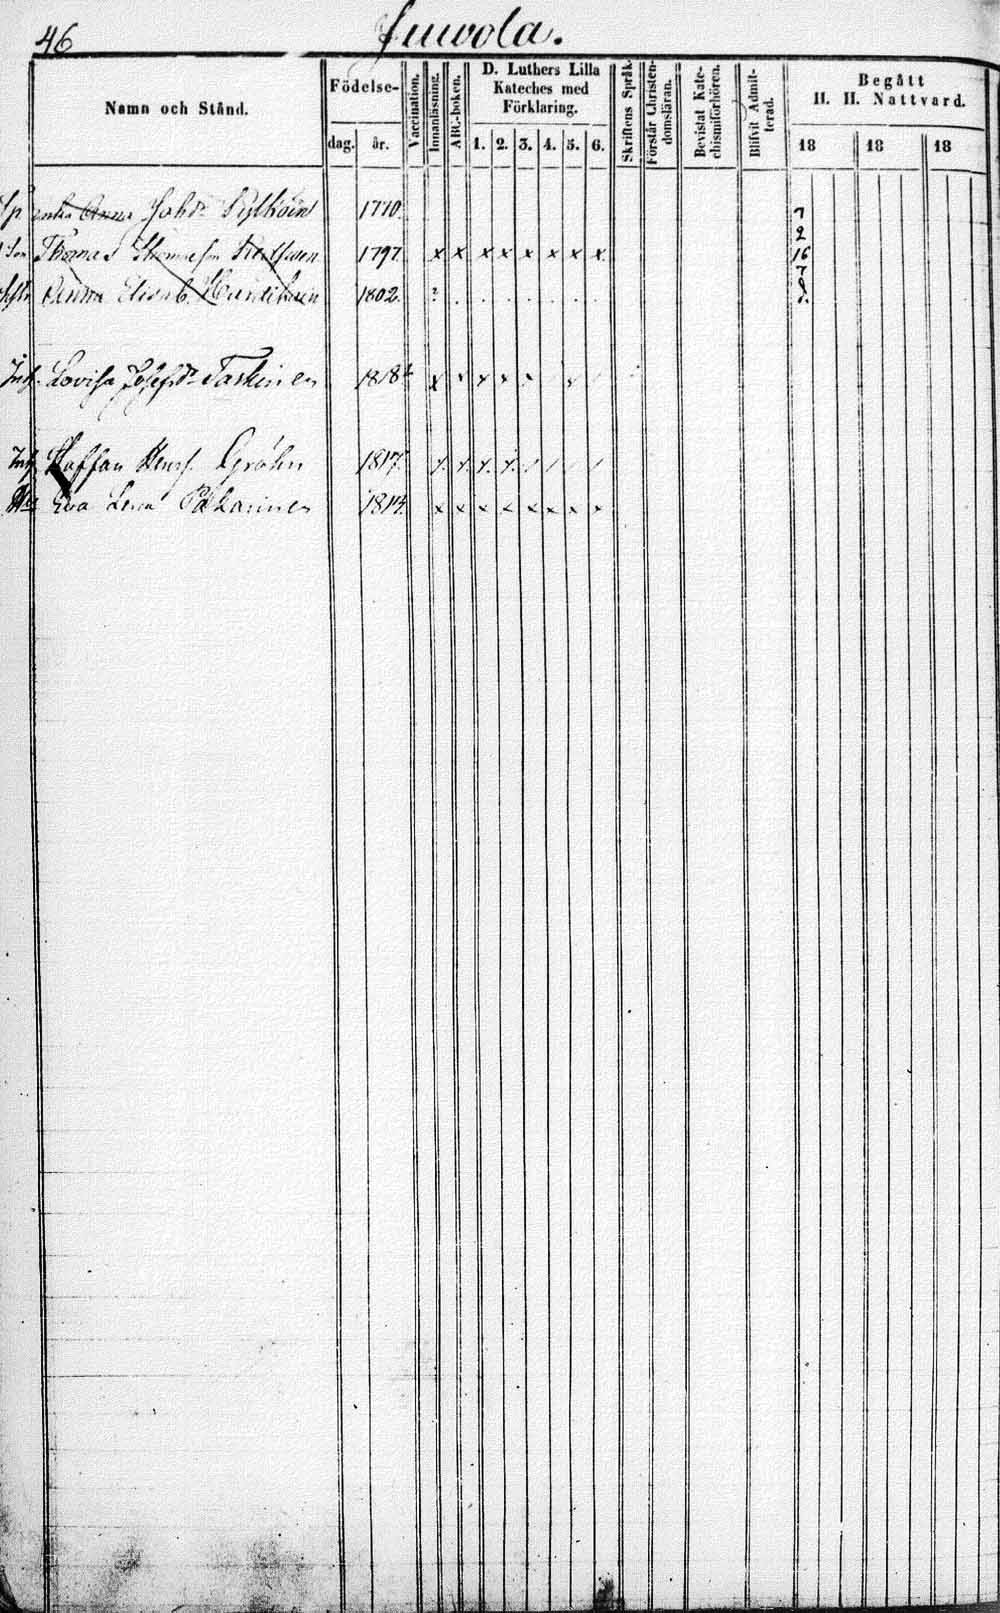 46
Juwola.
Namn och Stånd.
Födelse-
dag.
år.
Vaccination.
Innanläsning.
ABC-boken.
D. Luthers Lilla
Kateches med
Förklaring.
1. 2. 3. 4. 5. 6.
Skriftens Språk.
Förstår Christen-
domsläran.
Bevistat Kate-
chismiförhören.
Blifvit Admit-
terad.
Begått
H. H. Nattvard.
18 18 18
enka Anna Joh:dr 1770 7
2
Son Thomas Thomasson 1797 x x x x x x x x 16
7
Anna Elisab. 1802 ? 8.
Inh. Lovisa Josefsdr Taskinen 1818
Inh. Staffan Henr. Gröhn 1817.
Eva Lena Pakarinen 1814. x x x x x x x x